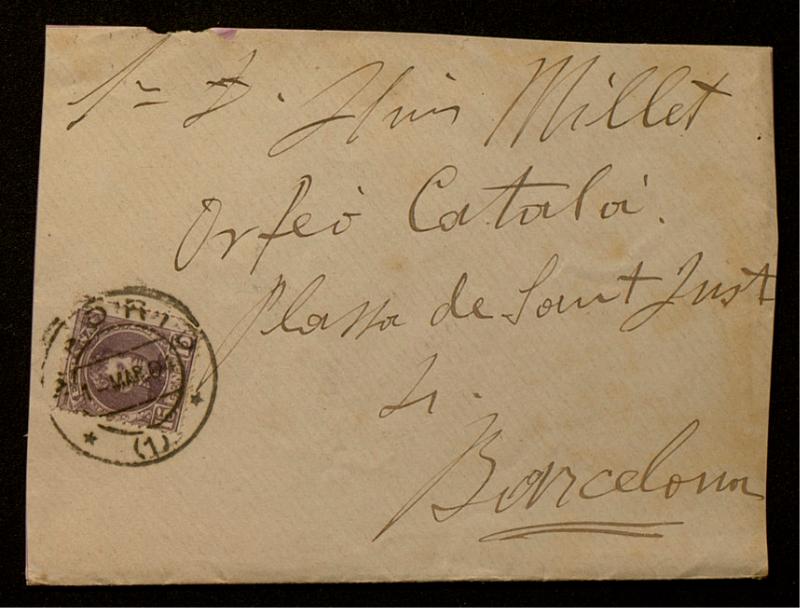 Sr. D. Lluis Millet
Orfeó Català.
Plassa de Sant Just
Barcelona
MAR 04
(1)